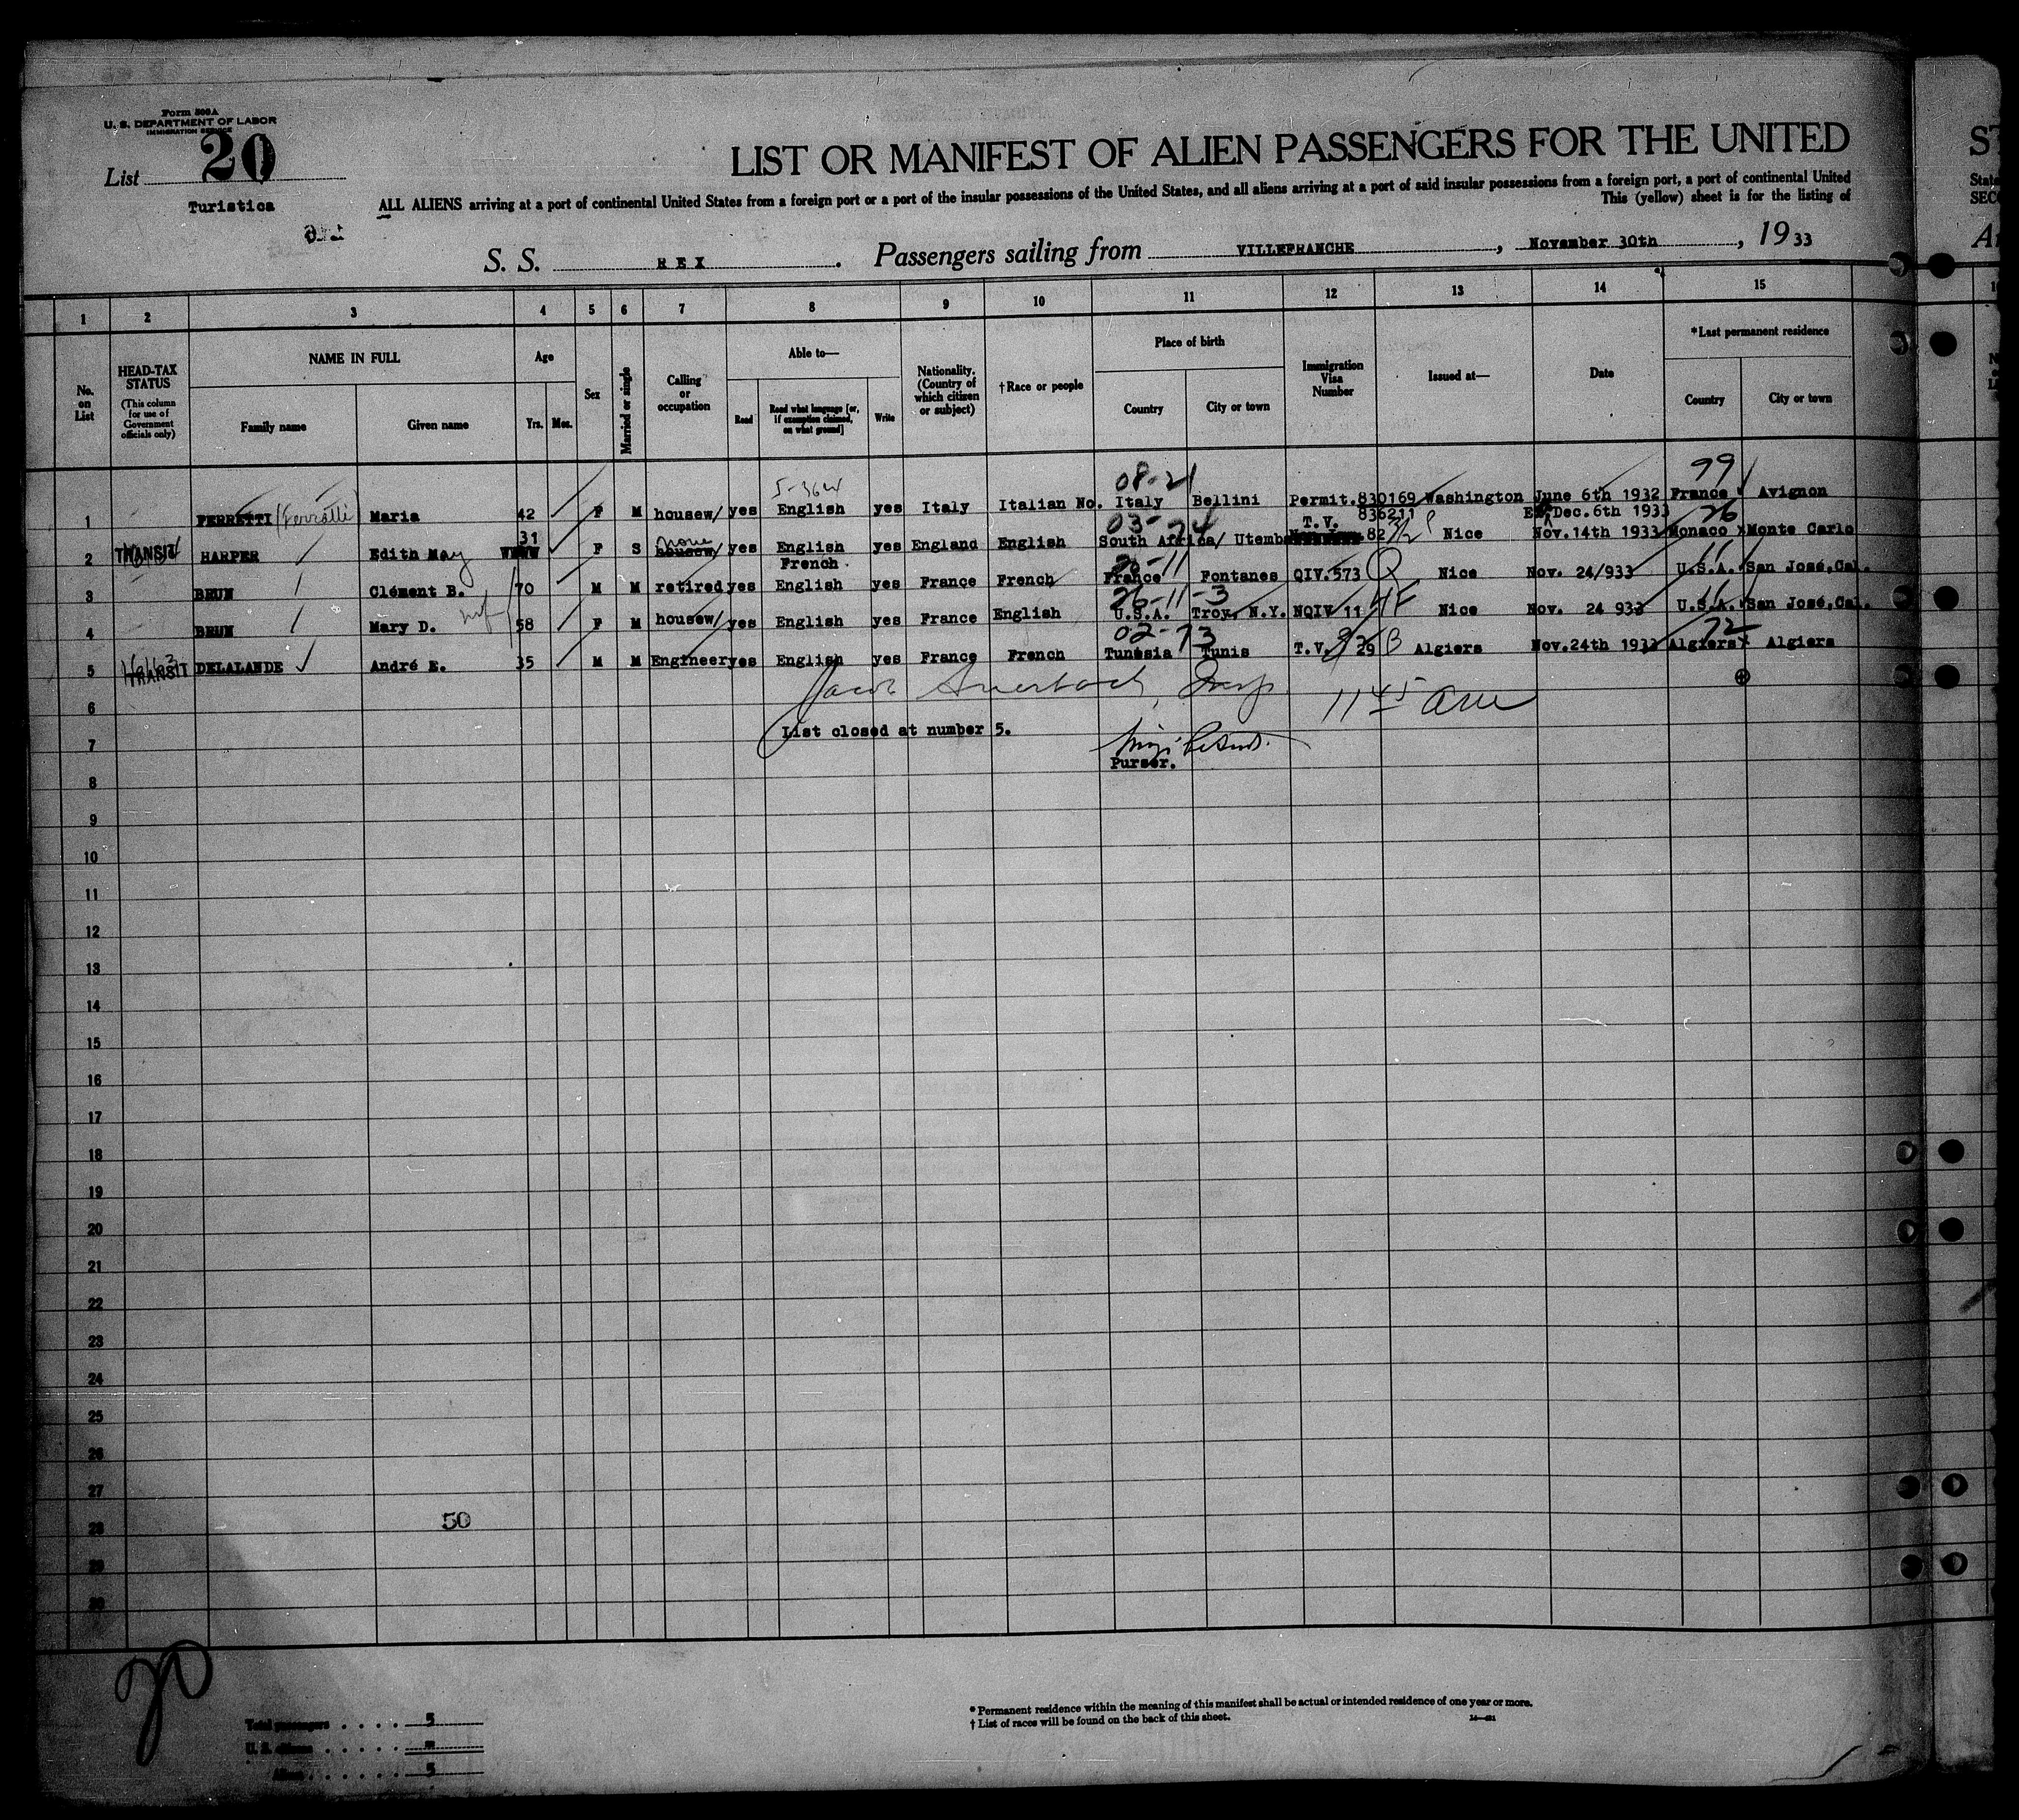 Form 500A
U. S. DEPARTMENT OF LABOR
IMMIGRATION SERVICE
List 20
Turistica
LIST OR MANIFEST OF ALIEN PASSENGERS FOR THE UNITED
ALL ALIENS arriving at a port of continental United States from a foreign port or a port of the insular possessions of the United States, and all aliens arriving at a port of said insular possessions from a foreign port, a port of continental United
This (yellow) sheet is for the listing of
S. S. REX. Passengers sailing from VILLEFRANCHE, November 30th, 1933
1 2 3 4 5 6 7 8 9 10 11 12 13 14 15
No. on List
HEAD-TAX STATUS (This column for use of Government officials only)
NAME IN FULL Family name Given name
Age Yrs. Mos.
Sex
Married or single
Calling or occupation
Able to— Read Read what language [or, if exemption claimed, on what ground] Write
Nationality. (Country of which citizen or subject)
†Race or people
Place of birth Country City or town
Immigration Visa Number
Issued at—
Date
*Last permanent residence Country City or town
08-21 99
1 FERRETTI (Ferralli) Maria 42 F M housew/ yes English yes Italy Italian No. Italy Bellini Permit.830169 Washington June 6th 1932 France Avignon
836211 Dec.6th 1933
2 TRANSIT HARPER Edith May 31 F S none housew/ yes English yes England English South Africa/ Utemb T.V. 82 Nice Nov.14th 1933 Monaco Monte Carlo
French
3 BRUN Clément B. 70 M M retired yes English yes France French France Fontanes QIV.573 Q Nice Nov. 24/933 U.S.A. San José,Cal.
26-11-3
4 BRUN Mary D. 58 F M housew/ yes English yes France English U.S.A. Troy, N.Y. NQIV 11 4F Nice Nov. 24 933 U.S.A. San José,Cal.
02-73 72
5 TRANSIT DELALANDE André E. 35 M M Engineer yes English yes France French Tunesia Tunis T.V. 29 B Algiers Nov.24th 1933 Algiers Algiers
6 Jacob Auerbach, Insp. 11 45 am
7 List closed at number 5.
Purser.
8
9
10
11
12
13
14
15
16
17
18
19
20
21
22
23
24
25
26
27
28
29
30
50
20
Total passengers . . . . 5
U. S. citizens . . . . . =
Aliens . . . . . . 5
* Permanent residence within the meaning of this manifest shall be actual or intended residence of one year or more.
† List of races will be found on the back of this sheet.